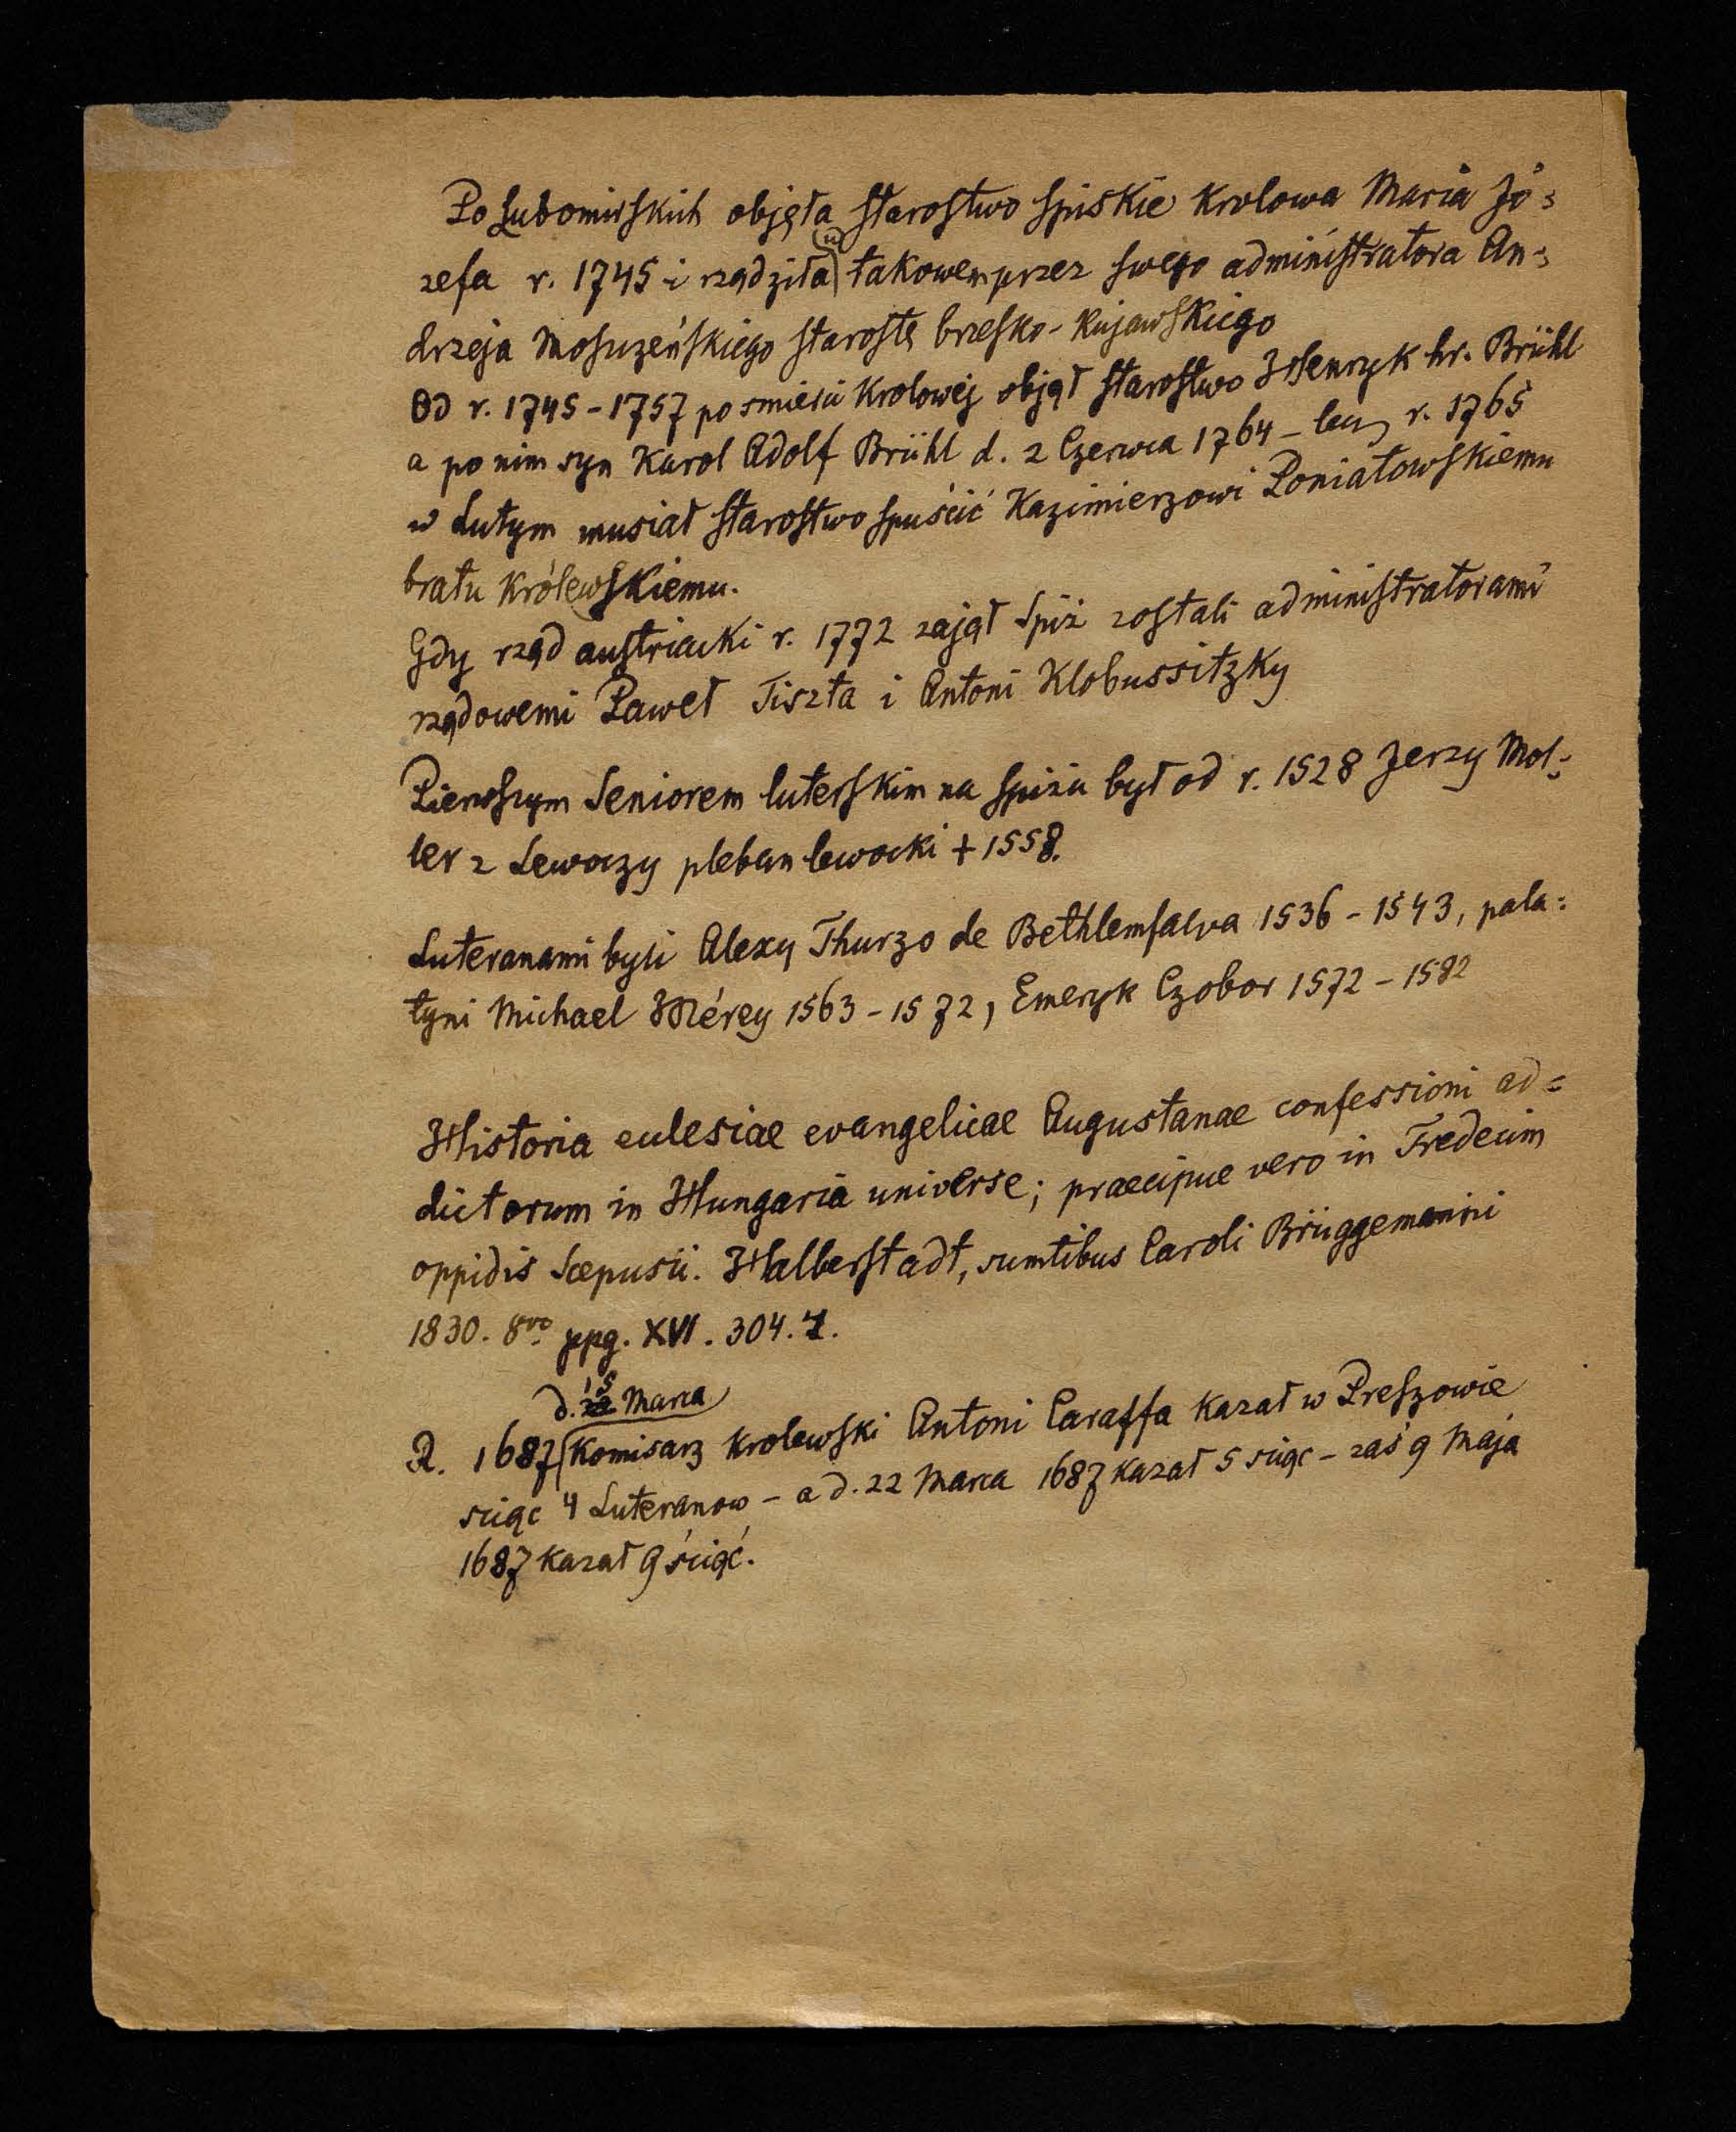 Po Lubomirskich objęła starostwo spiskie krolowa Maria Jó=
zefa r. 1745 i rządziła (w) takowem przez swego administratora An=
drzeja Moszczeńskiego starostę brzesko-kujawskiego
Od r. 1745 - 1757 po smierci krolowéj objął starostwo Henryk hr. Brühl
a po nim syn Karol Adolf Brühl d. 2 Czerwca 1764 - lecz r. 1765
w Lutym musiał starostwo spuścić Kazimierzowi Poniatowskiemu
bratu królewskiemu.
Gdy rząd austriacki r. 1772 zajął Spiż zostali administratorami
rządowemi Paweł Tiszta i Antoni Klobussitzky
Pierwszym Seniorem luterskim na Spiżu był od r. 1528 Jerzy Mol=
ler z Lewoczy pleban lewocki + 1558.
Luteranami byli Alexy Thurzo de Bethlemfalva 1536 - 1543, pala=
tyni Michael Mérey 1563 - 1572, Emeryk Czobor 1572 - 1582
Historia eclesiae evangelicae Augustanae confessioni ad=
dictorum in Hungaria universe; praecipue vero in Tredecim
oppidis Scepusii. Halberstadt, sumtibus Caroli Brüggemanni
1830. 8vo ppg. XVI. 304. 1.
d. 15 Marca
R. 1687 Komisarz krolewski Antoni Caraffa kazał w Preszowie
sciąc 4 Luteranow - a d. 22 Marca 1687 kazał 5 sciąc - zaś 9 Maja
1687 kazał 9 ściąć.